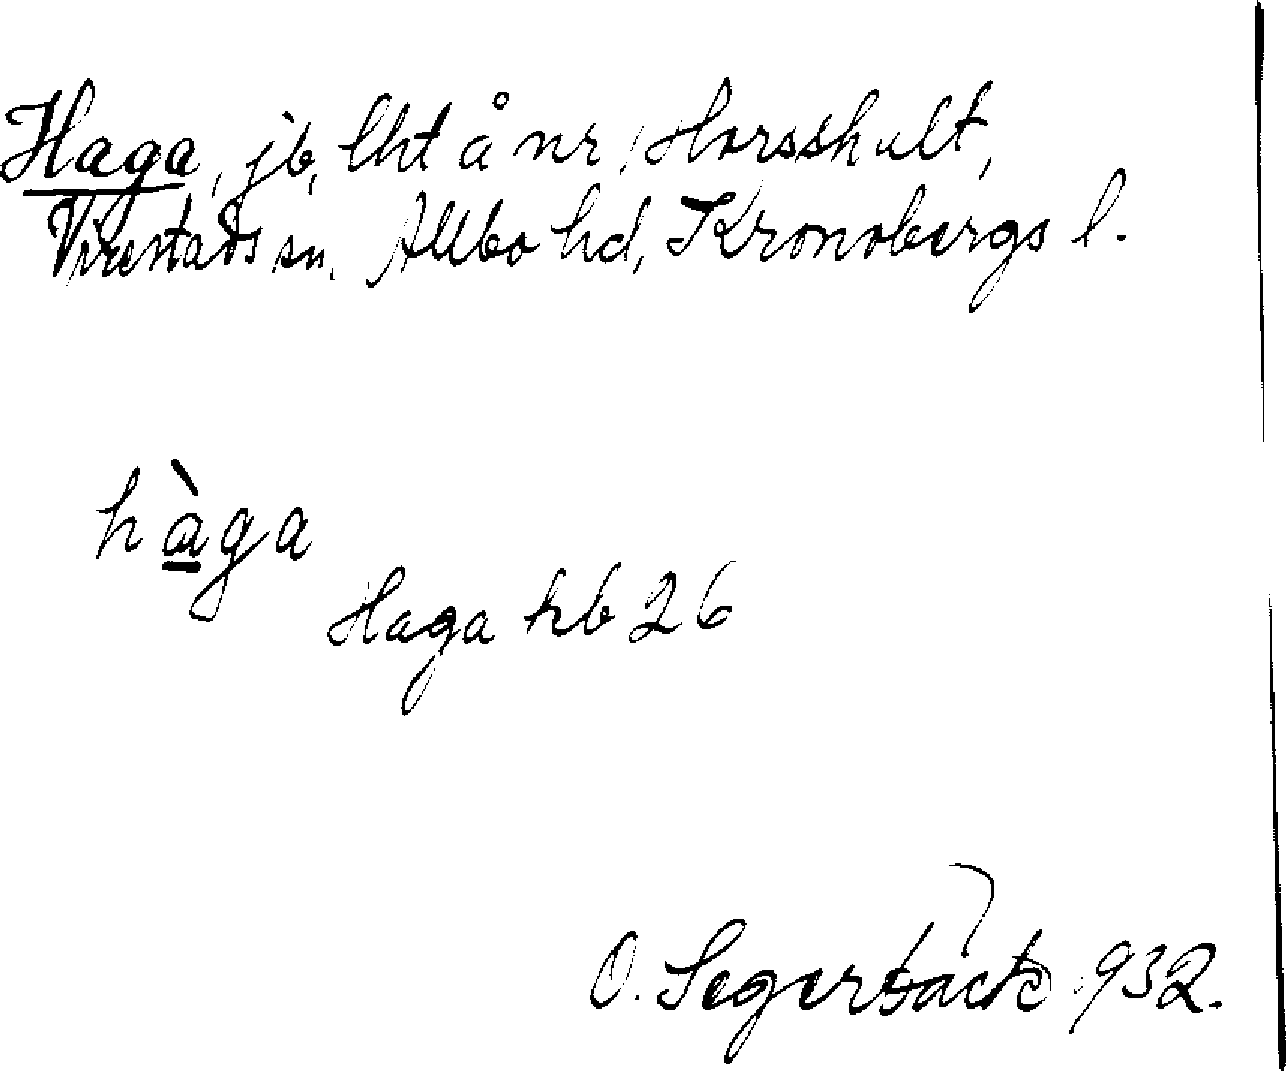 Haga, jb, lht å nr 1 Horsshult,
Virestads sn. Allbo hd, Kronobergs l.
hàga
Haga hb 26
O. Segerbäck 932.